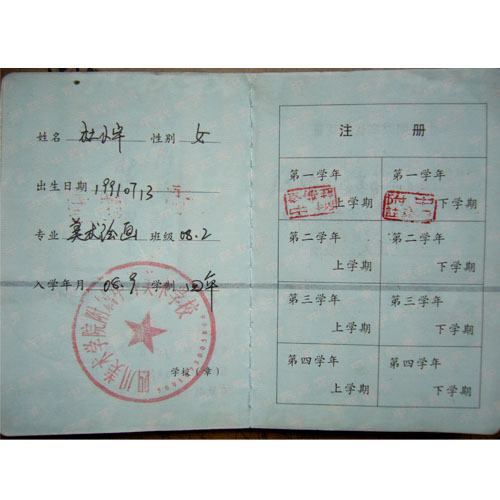 姓名 杜 性别 女
出生日期 19910713
专业 美术绘画 班级 08.2
入学年月 08.9 学制 四年
学校（章）
四川美术学院附属中等美术学校
注 册
第一学年 上学期
第一学年 下学期
第二学年 上学期
第二学年 下学期
第三学年 上学期
第三学年 下学期
第四学年 上学期
第四学年 下学期